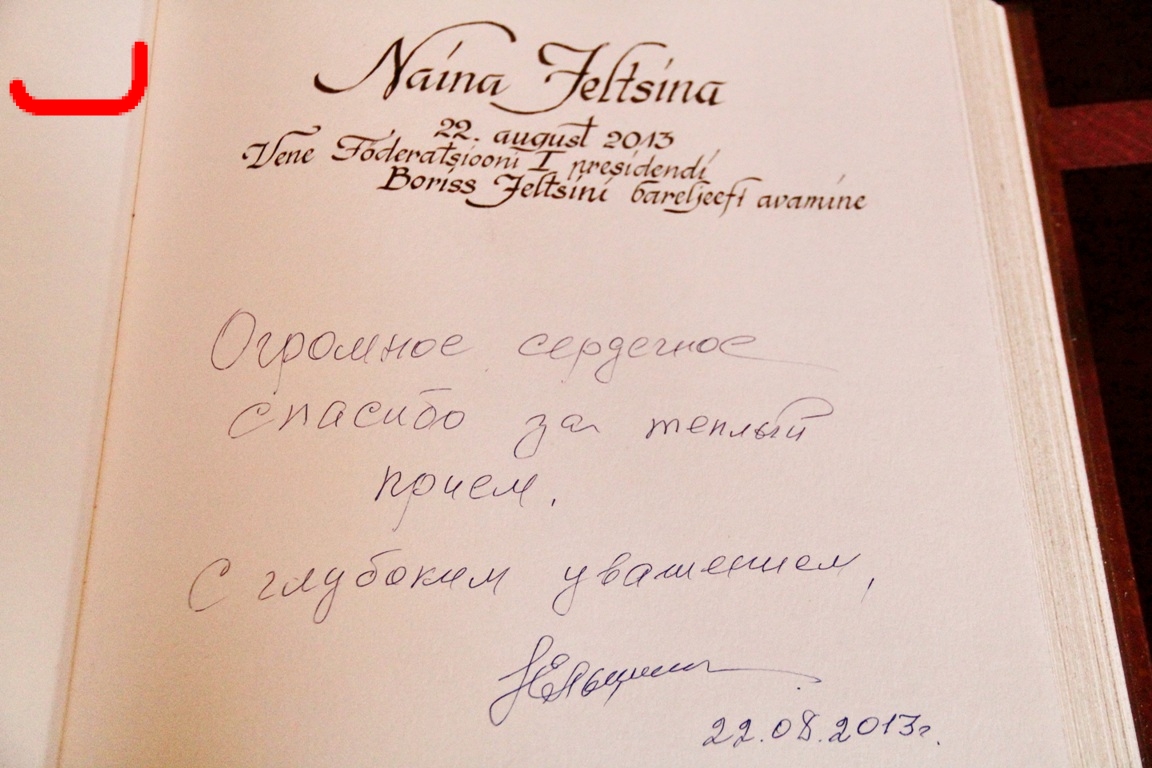 Naina Jeltsina
22. august 2013
Vene Föderatsiooni I presidendi
Boriss Jeltsini bareljeefi avamine
Огромное сердечное
спасибо за теплый
прием.
С глубоким уважением,
НЕльцина
22.08.2013г.